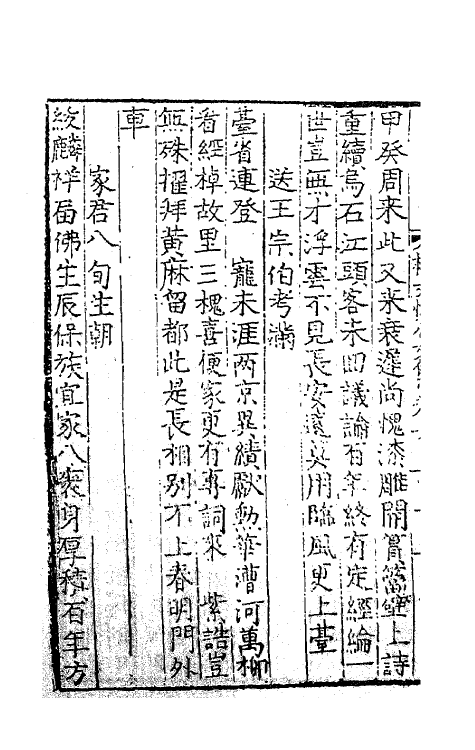 甲癸周来此又来衰遲尚愧漆雕開篔簹壁上詩
重續烏石江頭客未回議論百年終有定經綸一
世豈無才浮雲不見長安遠莫用臨風更上臺
送王宗伯考滿
臺省連登　寵未涯兩京異績獻勳華漕河萬柳
看經棹故里三槐喜便家更有專詞來　紫誥豈
無殊擢拜黃麻留都此是長相別不上春明門外
車
家君八旬生朝
紱麟祥届佛生辰保族宜家八袠身厚積百年方